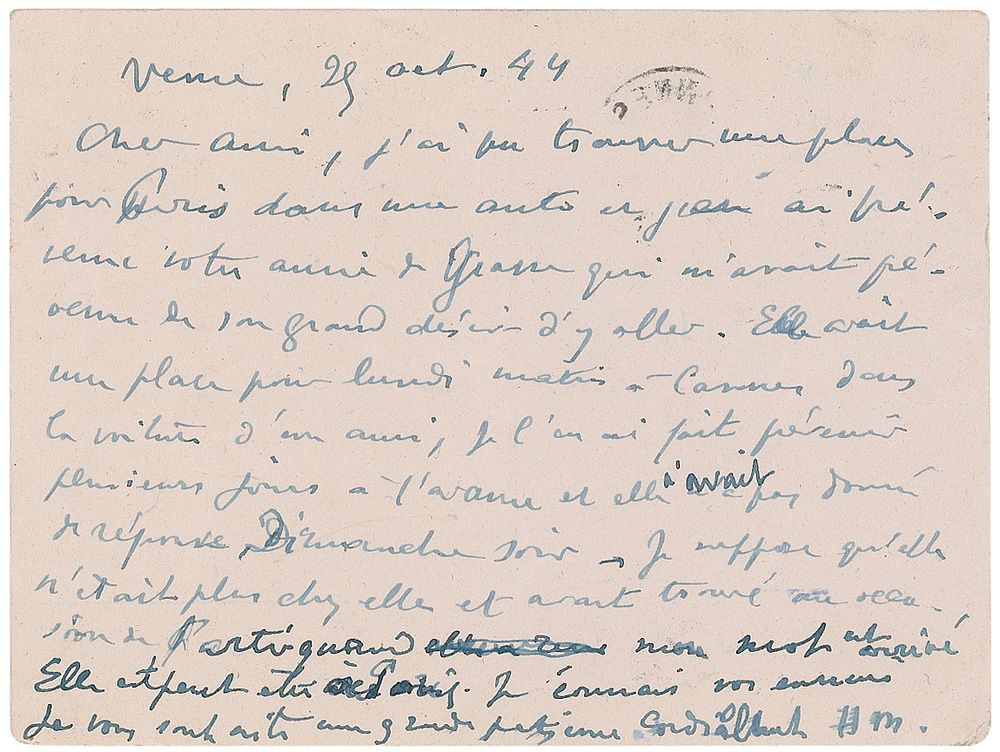 Vence, 29 oct. 44
Cher ami, j'ai pu trouver une place
pour Paris dans une auto et j'en ai pré-
venu votre amie de Grasse qui m'avait pré-
venu de son grand désir d'y aller. Elle avait
une place pour lundi matin à Cannes dans
la voiture d'un ami, je l'en ai fait prévenir
plusieurs jours à l'avance et elle n'avait pas donné
de réponse Dimanche soir, je suppose qu'elle
n'était plus chez elle et avait trouvé une occa-
sion de quand mon mot est arrivé
Elle est peut être à Paris. Je connais vos ennuis
Je vous souhaite une grande patience Cordialement HM.